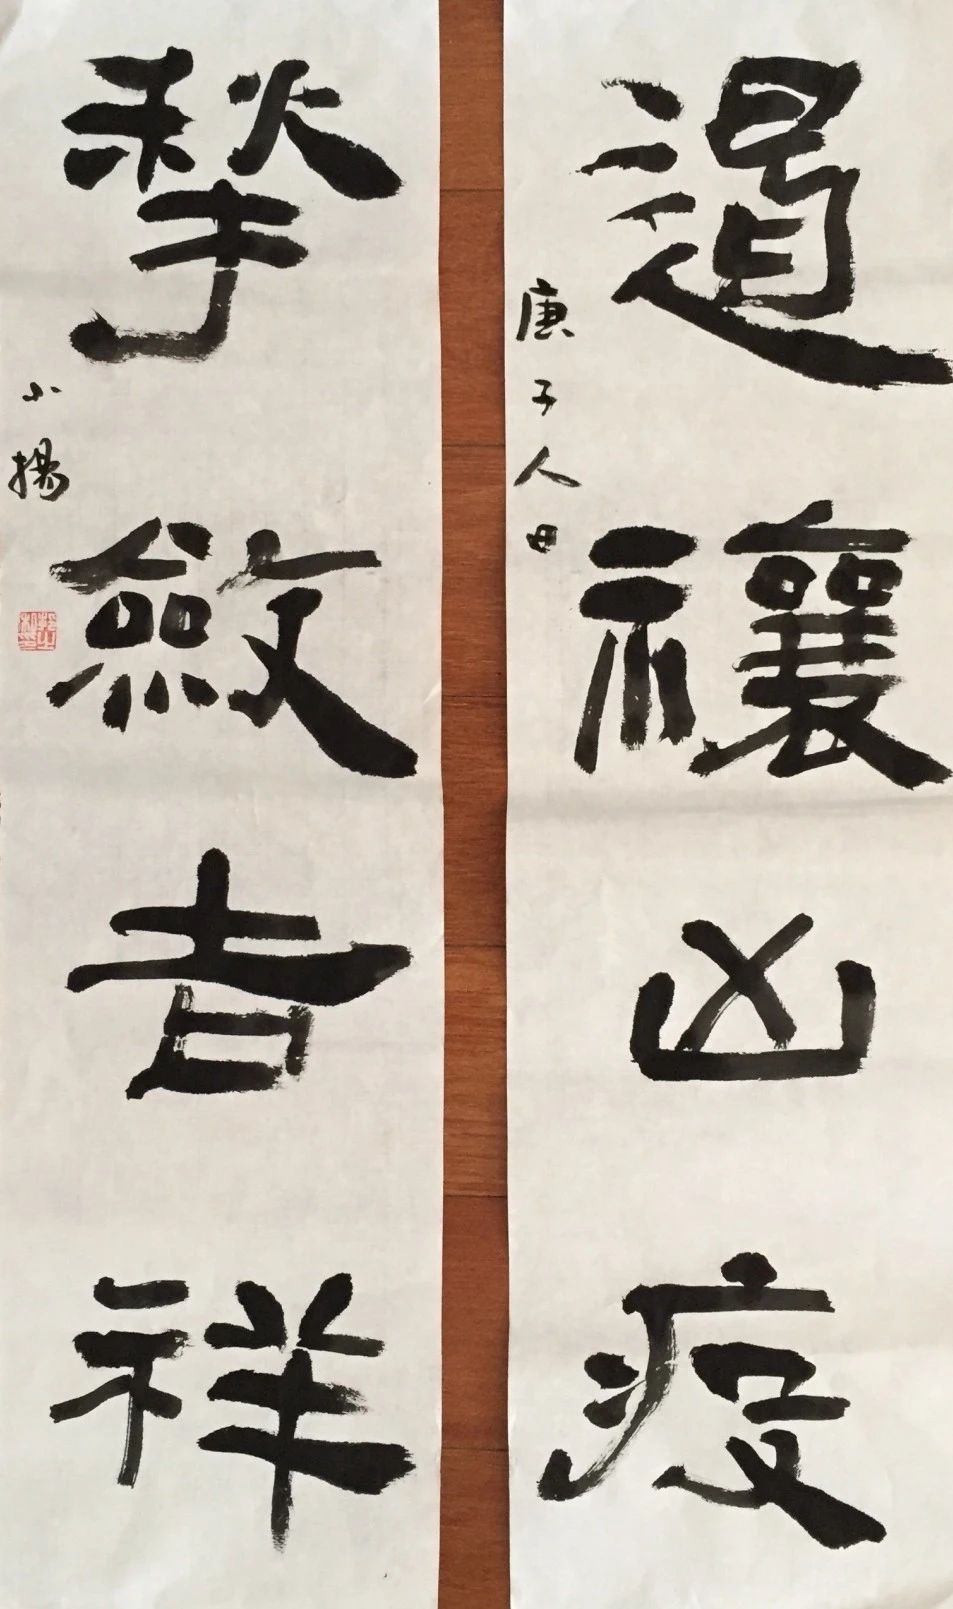 遏禳凶疫
庚子人日
揫斂吉祥
小揚